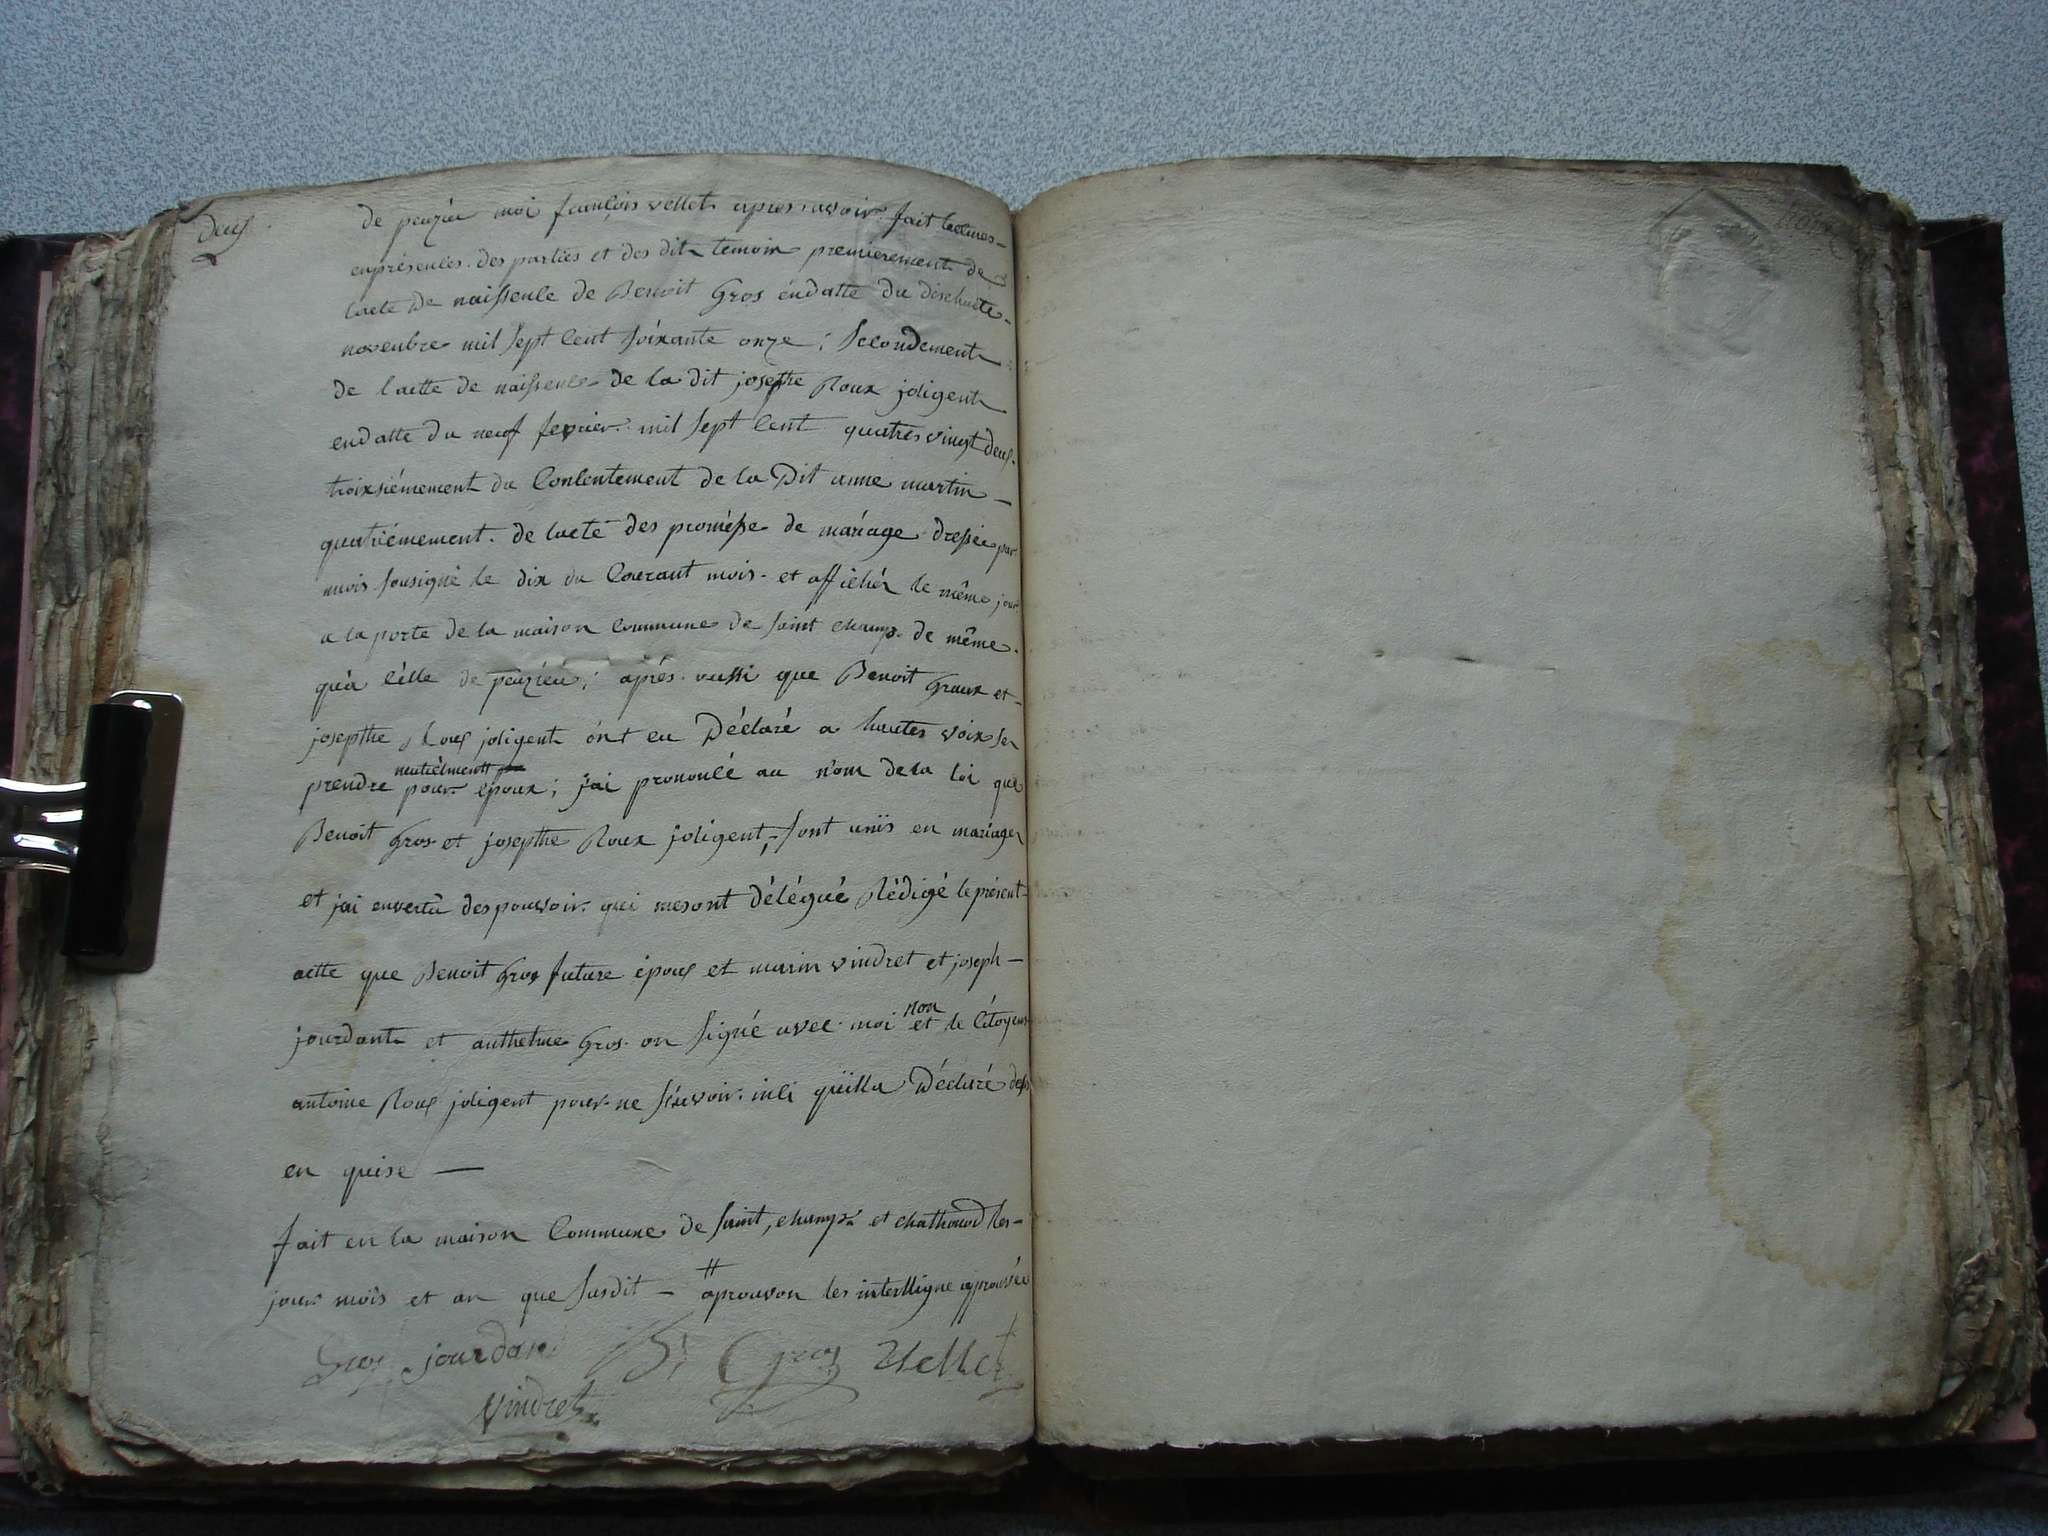 deux
de peuzieu moi françois vellet apres avoir fait lectures
en présences des parties et des dit temoin premierement de
lacte de naissence de Benoit Gros éndatte du dixhuite
novenbre mil sept cent soixante onze ; secondement
de lactte de naissence de la dit josepthe Roux joligent
endatte du neuf fevrier mil sept cent quatres vingt deux
troixsiémement du consentement de la Dit anne martin
quatriémement de lacte des promésse de mariage dressée par
mois sousigné le dix du courant mois et affichér le même jour
a la porte de la maison commune de saint champ de même
qu'a célle de peuzieu ; aprés aussi que Benoit Graux et
josepthe Roux joligent ónt eu Déclaré a hautes voix se
mutuélment
prendre pour époux ; j'ai prononcé au nom de la loi que
Benoit Gros et josepthe Roux joligent, sont uniis en mariage
et jai envertu des pouvoir qui mesont délégué Rédigé le présent
actte que Benoit Gros future époux et marin vindret et joseph
non
jourdant et anthelme Gros on signé avec moi et le Citoyens
antoine Roux joligent pour ne scavoir inci quilla Déclaré des
en quise
fait en la maison Commune de saint, champ et chathonod les
jour mois et an que susdit — # aprouvon les interlligne aprouvée
Gros jourdan Bt Gros Vellet
vindret